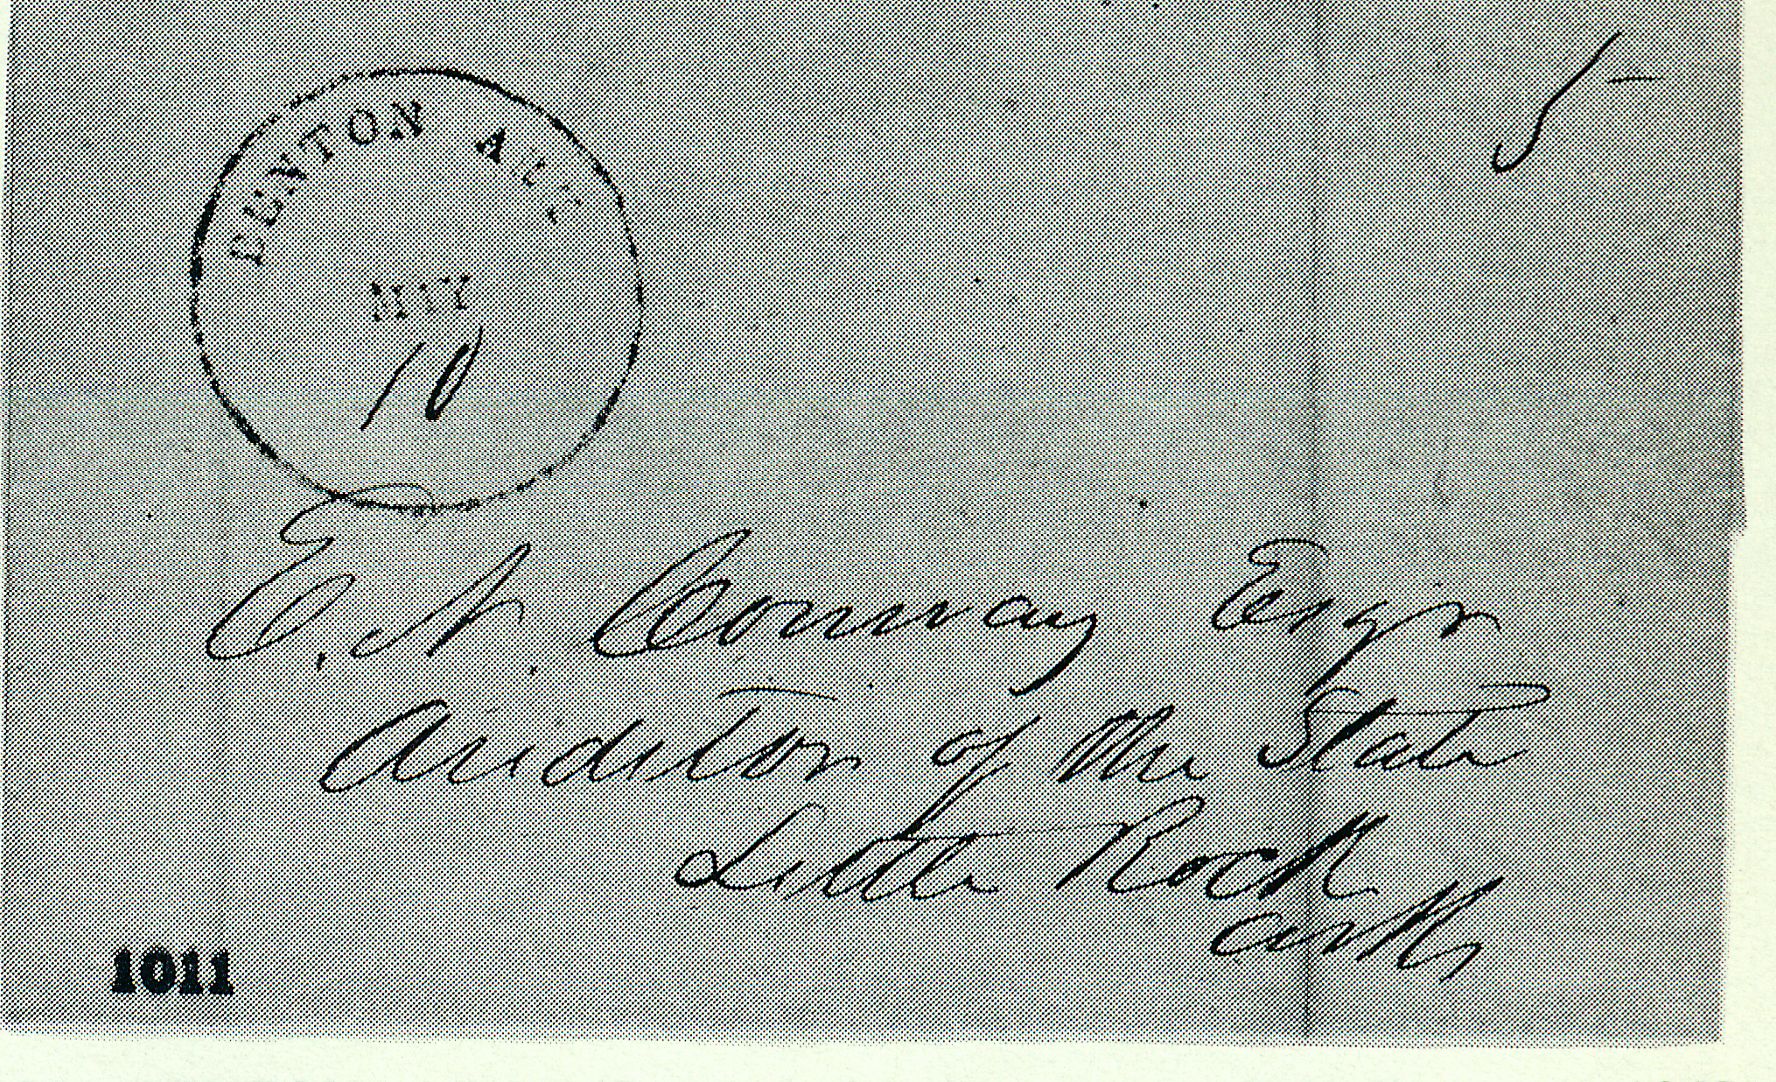 BENTON ARK
5
MAY
10
E. N. Conway Esqr
Auditor of the State
Little Rock
Ark
1011